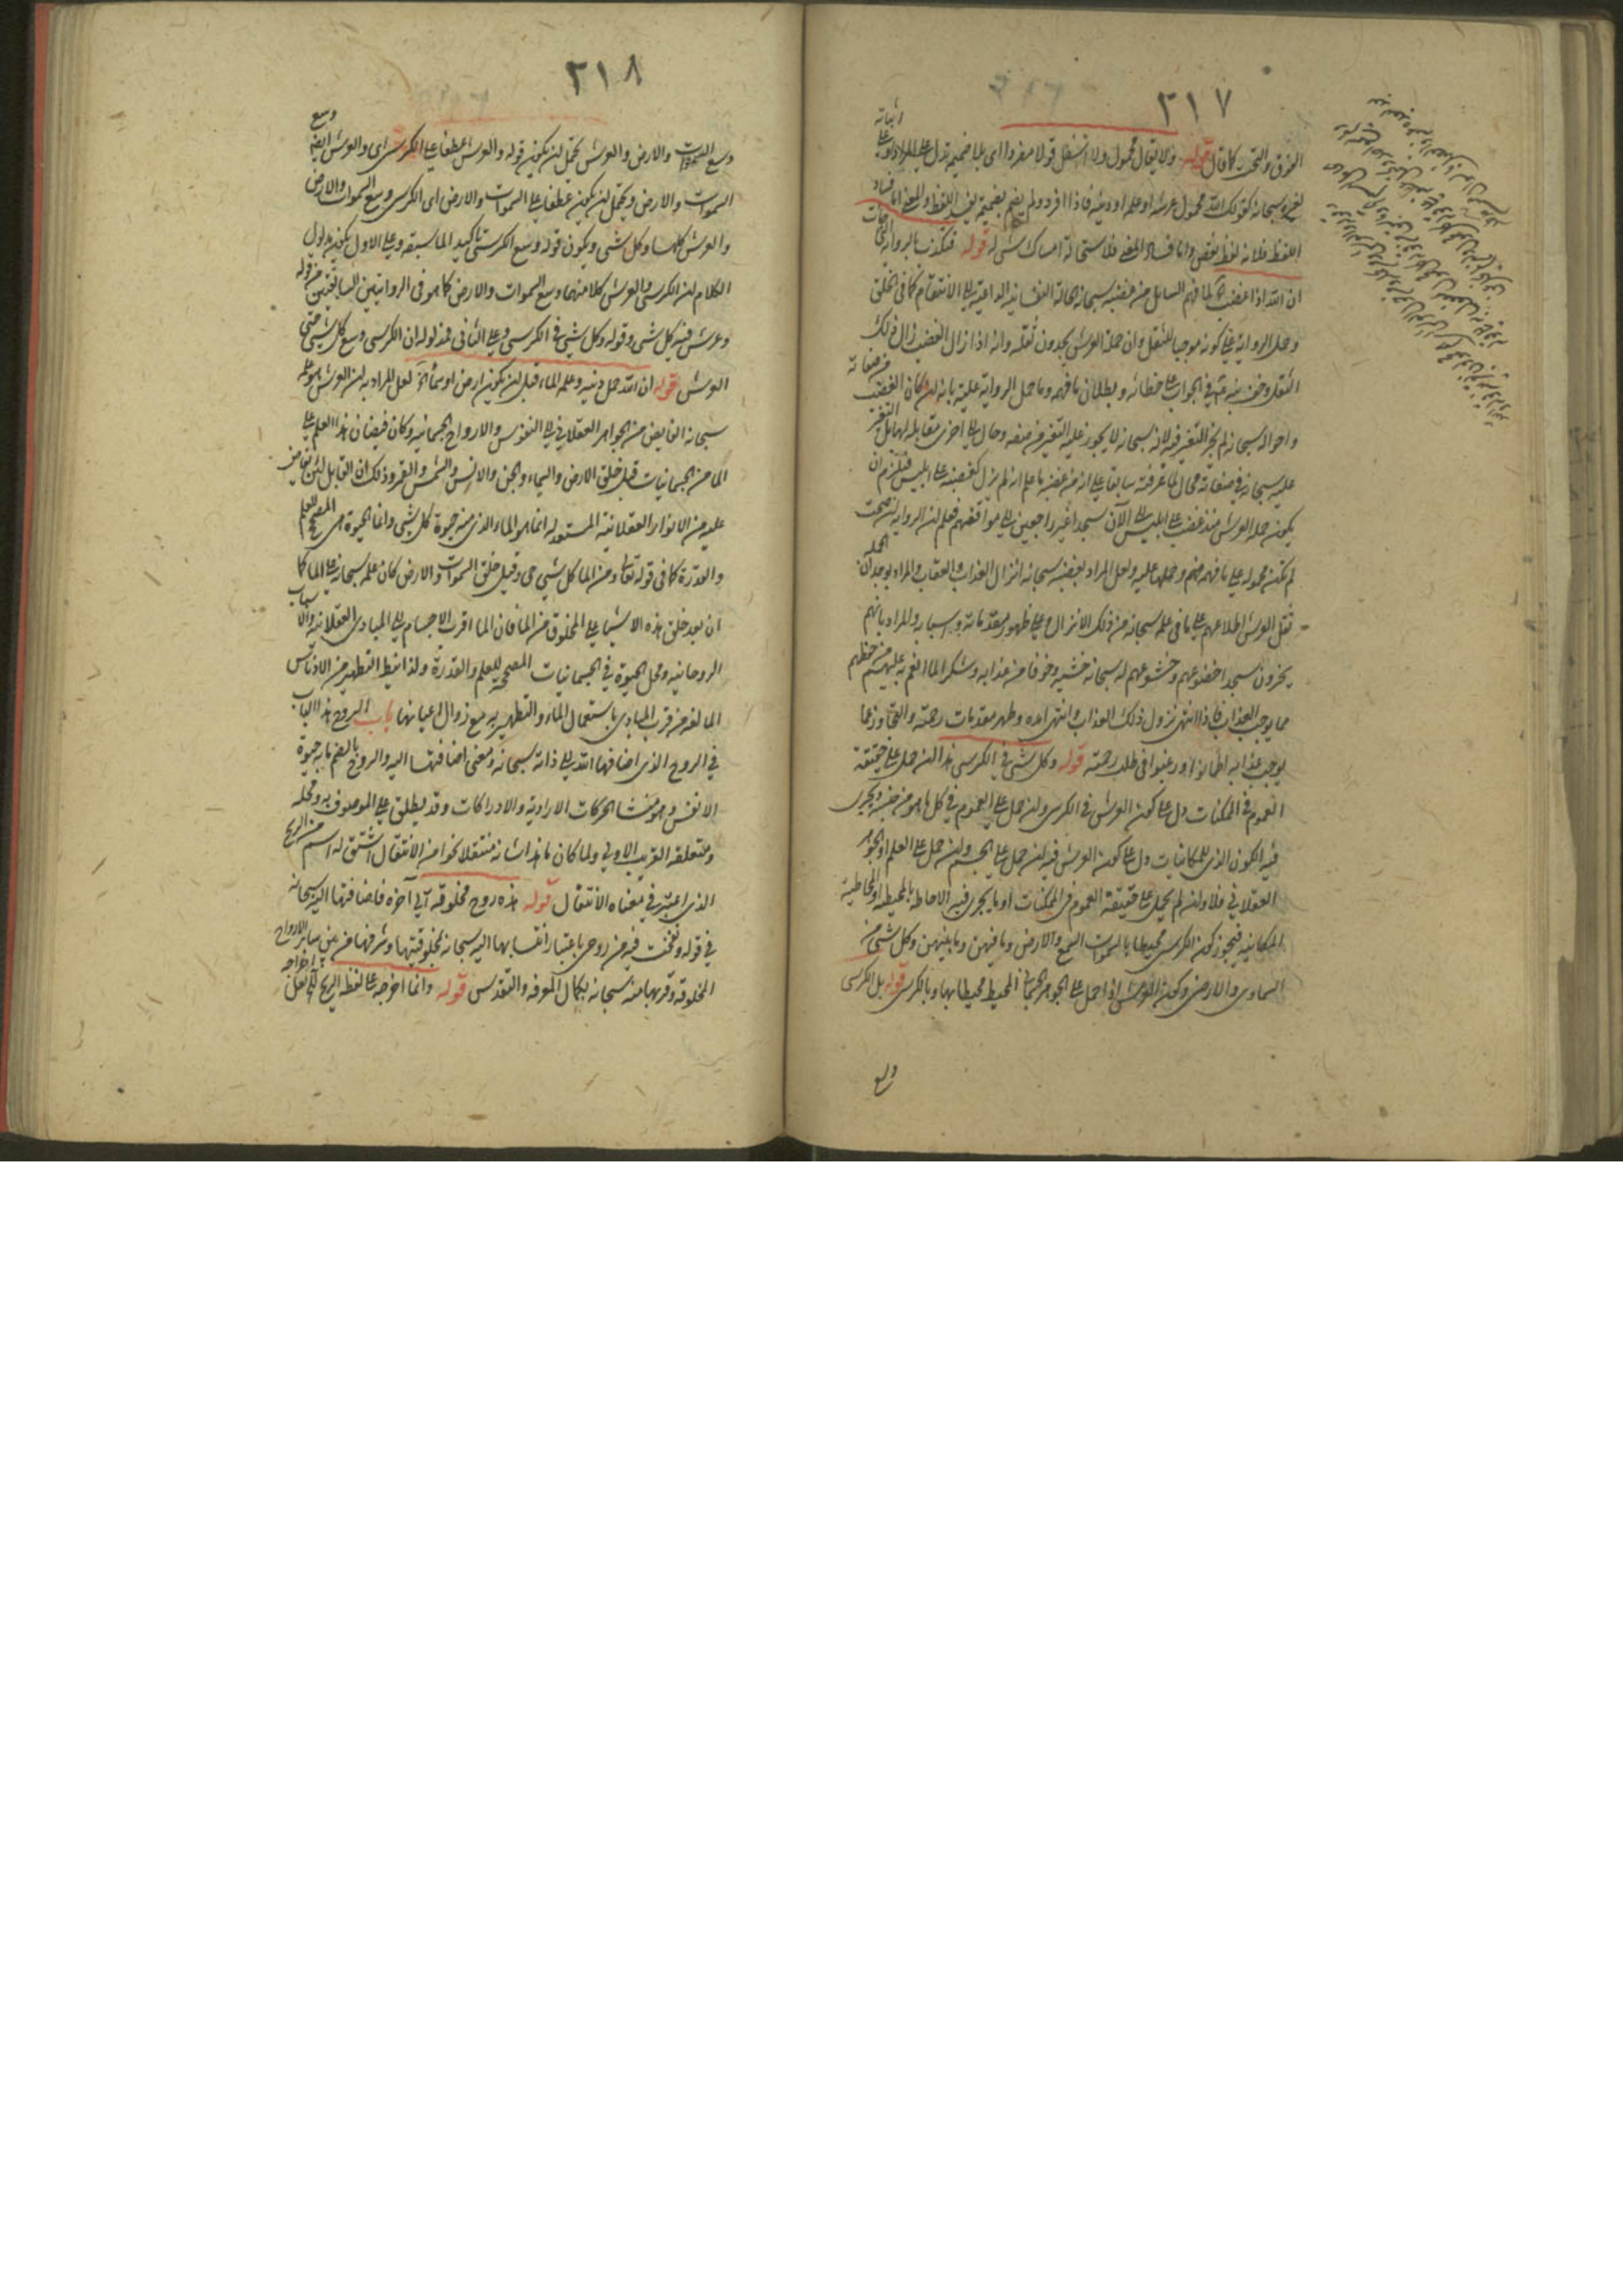 ٣١٧
الفوق والتحت كما قال قوله ولا يقال محمول ولا اسفل قولا مفردا اى بلا ضميمة تدل على المراد
لغيره سبحانه كقولك الله محمول عرشه او علمه او دينه فاذا افرد ولم يضم بضميمة يفسد اللفظ والمعنى اما فساد
اللفظ فلانه لفظ نقص واما فساد المعنى فلاستحالة امساك شئ له قوله فتكذب بالرواية التى جاءت
ان الله اذا غضب لما فهم السائل من غضبه سبحانه الحالة النفسانية الداعية الى الانتقام كما فى الخلق
وحمل الرواية على كونه موجبا للثقل وان حملة العرش يجدون ثقله وانه اذا زال الغضب زال ذلك
الثقل وخف نبه فى الجواب على خطائه وبطلان ما فهمه وما حمل الرواية عليه بانه لو كان الغضب من صفاته
واحواله سبحانه لم يجز التغير فيه لانه سبحانه لا يجوز عليه التغير من صفة وحال الى اخرى مقابلة لها بل التغير
عليه سبحانه فى صفاته محال لما عرفته سابقا على انه من غضبه ما علم انه لم يزل كغضبه على ابليس فيلزم ان
يكون حملة العرش منذ غضب على ابليس الى الآن سجدا غير راجعين الى مواقفهم فعلم ان الرواية ان صحت
لم تكن محمولة على ما فهمه منهم وحملها عليه ولعل المراد بغضبه سبحانه انزال العذاب والعقاب والمراد بوجدان الحملة
ثقل العرش اطلاعهم على ما فى علمه سبحانه من ذلك الانزال وعلى ظهور مقدماته واسبابه والمراد بانهم
يخرون سجدا خضوعهم وخشوعهم له سبحانه خشية وخوفا من عذابه وشكرا لما انعم به عليهم من حفظهم
مما يوجب العذاب فاذا انتهى نزول ذلك العذاب وانتهى امده وظهر مقدمات رحمته والتجاوز عما
يوجب عذابه اطمأنوا ورغبوا فى طلب رحمته قوله وكل شئ فى الكرسى هذا ان حمل على حقيقة
العموم فى الممكنات دل على كون العرش فى الكرسى وان حمل على العموم فى كل ما هو من جنسه ويجرى
فيه الكون الذى للمكانيات دل على كون العرش فيه ان حمل على الجسم وان حمل على العلم او الجوهر
العقلانى فلا وان لم يحمل على حقيقة العموم فى الممكنات او ما يجرى فيه الاحاطة بالمحيطية او المحاطية
المكانية فيجوز كون الكرسى محيطا بالسموات السبع والارض وما فيهن وما بينهن وكل شئ من
السماوى والارض وكون العرش اذا حمل على الجوهر الجسمانى المحيط محيطا بها وبالكرسى قوله بل الكرسى
وسع
٣١٨
وسع السموات والارض والعرش يحتمل ان يكون قوله والعرش عطفا على الكرسى اى والعرش ايضا وسع
السموات والارض ويحتمل ان يكون عطفا على السموات والارض اى الكرسى وسع السموات والارض
والعرش كلها وكل شئ ويكون قوله وسع الكرسى تاكيدا لما سبقه وعلى الاول يكون مدلول
الكلام ان الكرسى والعرش كلا منهما وسع السموات والارض كما هو فى الروايتين السابقتين من قوله
وعرش فيه كل شئ وقوله وكل شئ فى الكرسى وعلى الثانى فمدلوله ان الكرسى وسع كل شئ حتى
العرش قوله ان الله حمل دينه وعلمه الماء قبل ان يكون ارض او سماء آه لعل المراد به ان العرش هو علمه
سبحانه الفايض من الجواهر العقلانى الى النفوس والارواح الجسمانية وكان فيضان هذا العلم على
الماء من الجسمانيات قبل خلق الارض والسماء والجن والانس والشمس والقمر وذلك ان القابل لان يفاض
عليه من الانوار العقلانية المستعد له انما هو الماء الذى منه حيوة كل شئ وانما الحيوة هى المصحح للعلم
والقدرة كما فى قوله تعالى ومن الماء كل شئ حى وقبل خلق السموات والارض كان علمه سبحانه على الماء كما
ان بعد خلق هذه الاشياء على المخلوق من الماء فان الماء اقرب الاجسام الى المبادى العقلانية والاسباب
الروحانية ومحل الحيوة فى الجسمانيات المصححة للعلم والقدرة ولذا نيط التطهير من الادناس
المانعة من قرب المبادى باستعمال الماء والتطهير به مع زوال اعيانها باب الروح هذا الباب
فى الروح الذى اضافها الله الى ذاته سبحانه ومعنى اضافتها اليه والروح بالضم ما به حيوة
الانفس وهو منشأ الحركات الارادية والادراكات وقد يطلق على الموصوف به ومحله
ومتعلقه القريب الاولى ولما كان ما هذا شانه منتقلا نحوا من الانتقال اشتق له اسم من الريح
الذى اعتبر فى معناه الانتقال قوله هذه روح مخلوقة الى آخره فاضافتها اليه سبحانه
فى قوله ونفخت فيه من روحى باعتبار انتسابها اليه سبحانه بمخلوقيتها وشرفها من بين ساير الارواح
المخلوقة وقربها منه سبحانه بكمال المعرفة والتقدس قوله وانما اخرجه على لفظ الريح آه لعل اخراجه